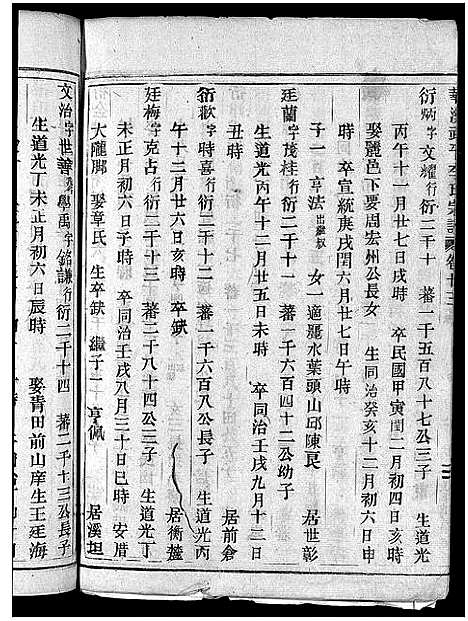 華溪武平李氏宗譜 卷廿三
衍炳字文耀行衍二千十 蕃一千五百八十七公三子 生道光
丙午十一月廿七日戌時 卒民國甲寅閏二月初四日亥時
娶麗邑下要周宏州公長女 生同治癸亥十二月初六日申
時 卒宣統庚戌 六月廿七日午時
子一 亨法出繼叔 女一適麗水葉頭山邱陳民 居世彰
廷蘭字茂桂行衍二千十一 蕃一千六百四十二公幼子
生道光丙午十二月廿五日未時 卒同治壬戌九月十三日
丑時 居前倉
衍歡字時喜行衍二千十二 蕃一千六百八公長子 生道光丙
午十二月廿六日亥時 卒缺 居衡
廷梅字克占行衍二千十三 蕃二千八十四公三子 生道光丁
未正月初六日子時 卒同治壬戌八月三十日巳時 安厝
大隴脚 娶章氏 生卒缺 繼子一 亨佩 居溪坦
文治字世善 學禹字銘謙行衍二千十四 蕃二千十三公長子
生道光丁未正月初六日辰時 娶青田前山庠生王廷海